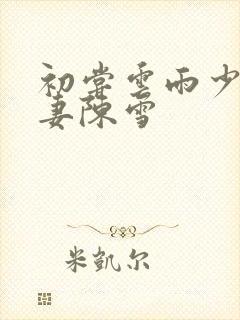 初尝云雨少
妻陈雪
米凯尔